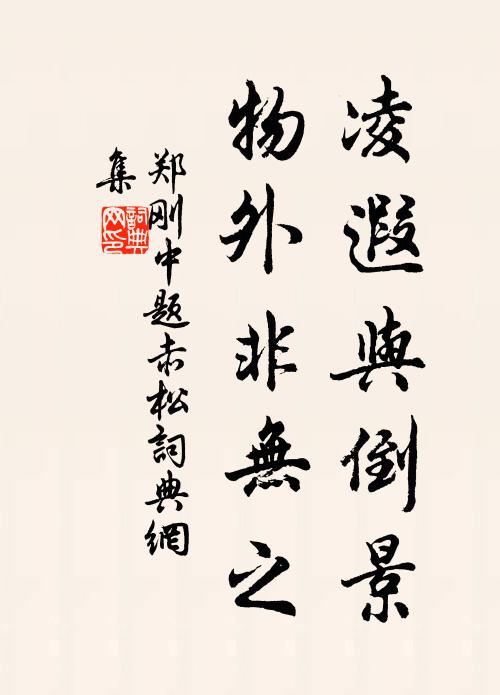 凌遐與倒景
物外非無之
郑刚中题赤松詞典網
集
詞典
网印